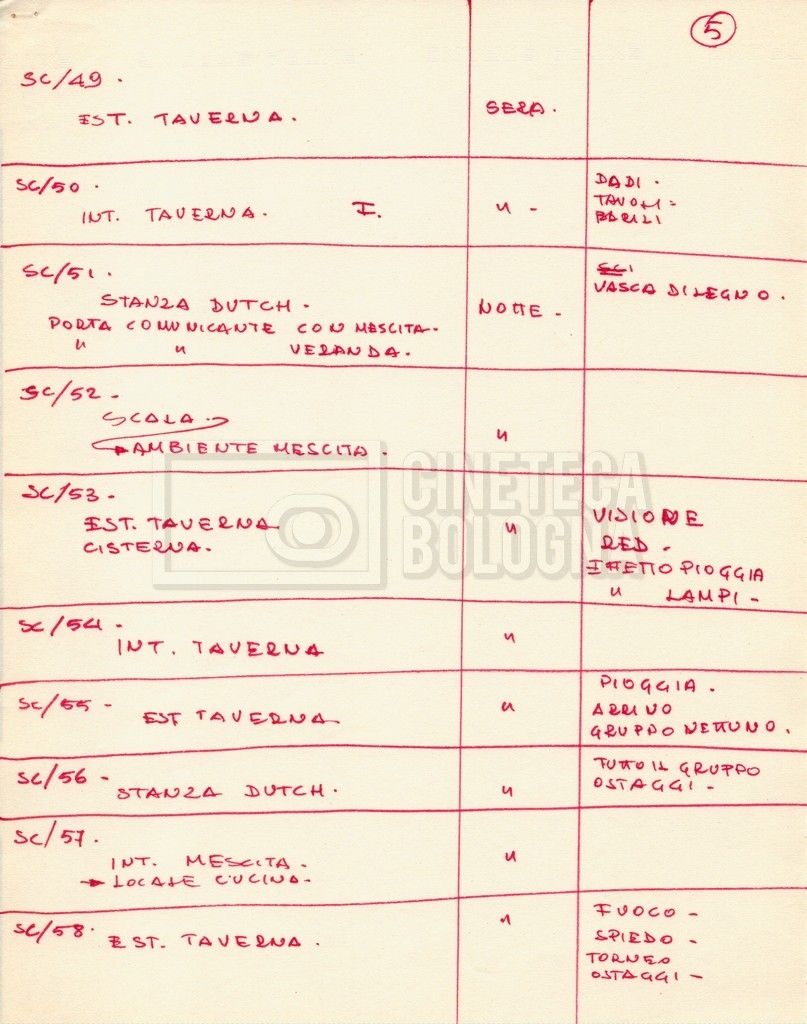 5
SC/49.
EST. TAVERNA.
SERA.
SC/50.
INT. TAVERNA. I.
" -
DADI.
TAVOLI -
BARILI
SC/51.
STANZA DUTCH.
PORTA COMUNICANTE CON MESCITA.
" " VERANDA.
NOTTE -
SCI
VASCA DI LEGNO.
SC/52 -
SCALA
AMBIENTE MESCITA.
"
SC/53 -
EST. TAVERNA
CISTERNA.
"
VISIONE
RED -
EFFETTO PIOGGIA
" LAMPI -
SC/54 -
INT. TAVERNA
"
SC/55 -
EST TAVERNA
"
PIOGGIA.
ARRIVO
GRUPPO NETTUNO.
SC/56 -
STANZA DUTCH.
"
TUTTO IL GRUPPO
OSTAGGI -
SC/57.
INT. MESCITA.
→ LOCALE CUCINA.
"
SC/58.
EST. TAVERNA.
"
FUOCO -
SPIEDO -
TORNEO
OSTAGGI -
CINETECA
BOLOGNA